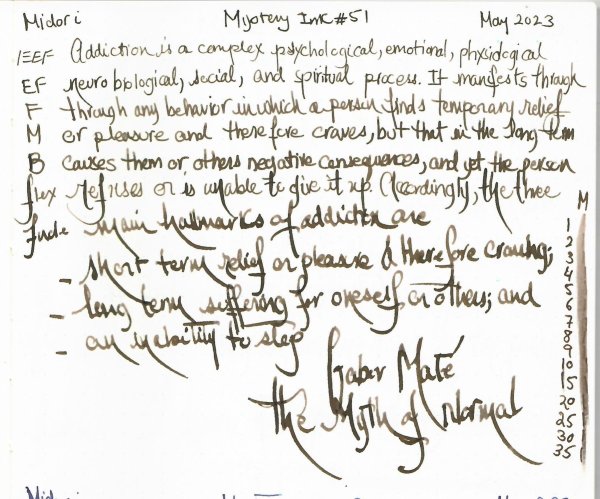 Midori Mystery Ink #51 May 2023
EEF Addiction is a complex psychological, emotional, physiological
EF neurobiological, social, and spiritual process. It manifests through
F through any behavior in which a person finds temporary relief
M or pleasure and therefore craves, but that in the long term
B causes them or others negative consequences, and yet the person
flex refuses or is unable to give it up. Accordingly, the three
fude main hallmarks of addiction are
- short term relief or pleasure & therefore craving;
- long term suffering for oneself or others; and
- an inability to stop
Gabor Maté
the Myth of Normal
M
1
2
3
4
5
6
7
8
9
10
15
20
25
30
35
Midori